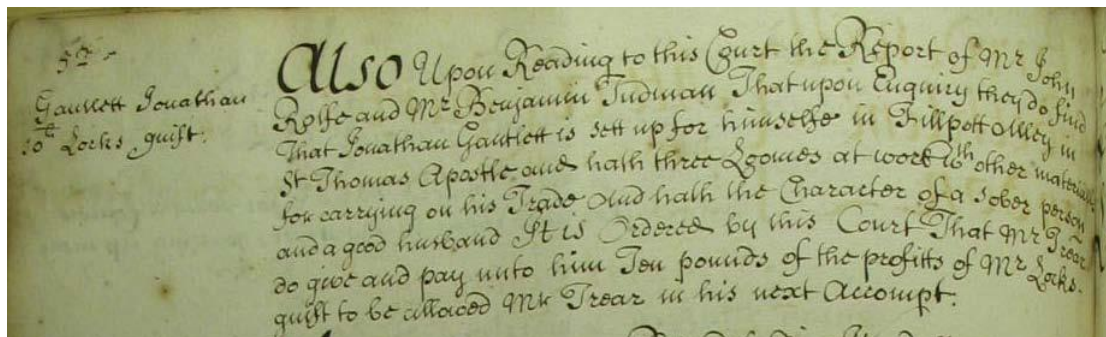 5th
Gautlett Jonathan
10£ Locks guift.
Also Upon Reading to this Court the Report of Mr John
Rolfe and Mr Benjamin Tudman That upon Enquiry they do find
That Jonathan Gautlett is sett up for himselfe in Fillpott Alley in
St Thomas Apostle and hath three Loomes at work wth other materialls
for carrying on his Trade And hath the Character of a sober person
and a good husband It is Ordered by this Court That Mr Trear
do give and pay unto him Ten pounds of the profitts of Mr Locks
guift to be allowed Mr Trear in his next Accompt.